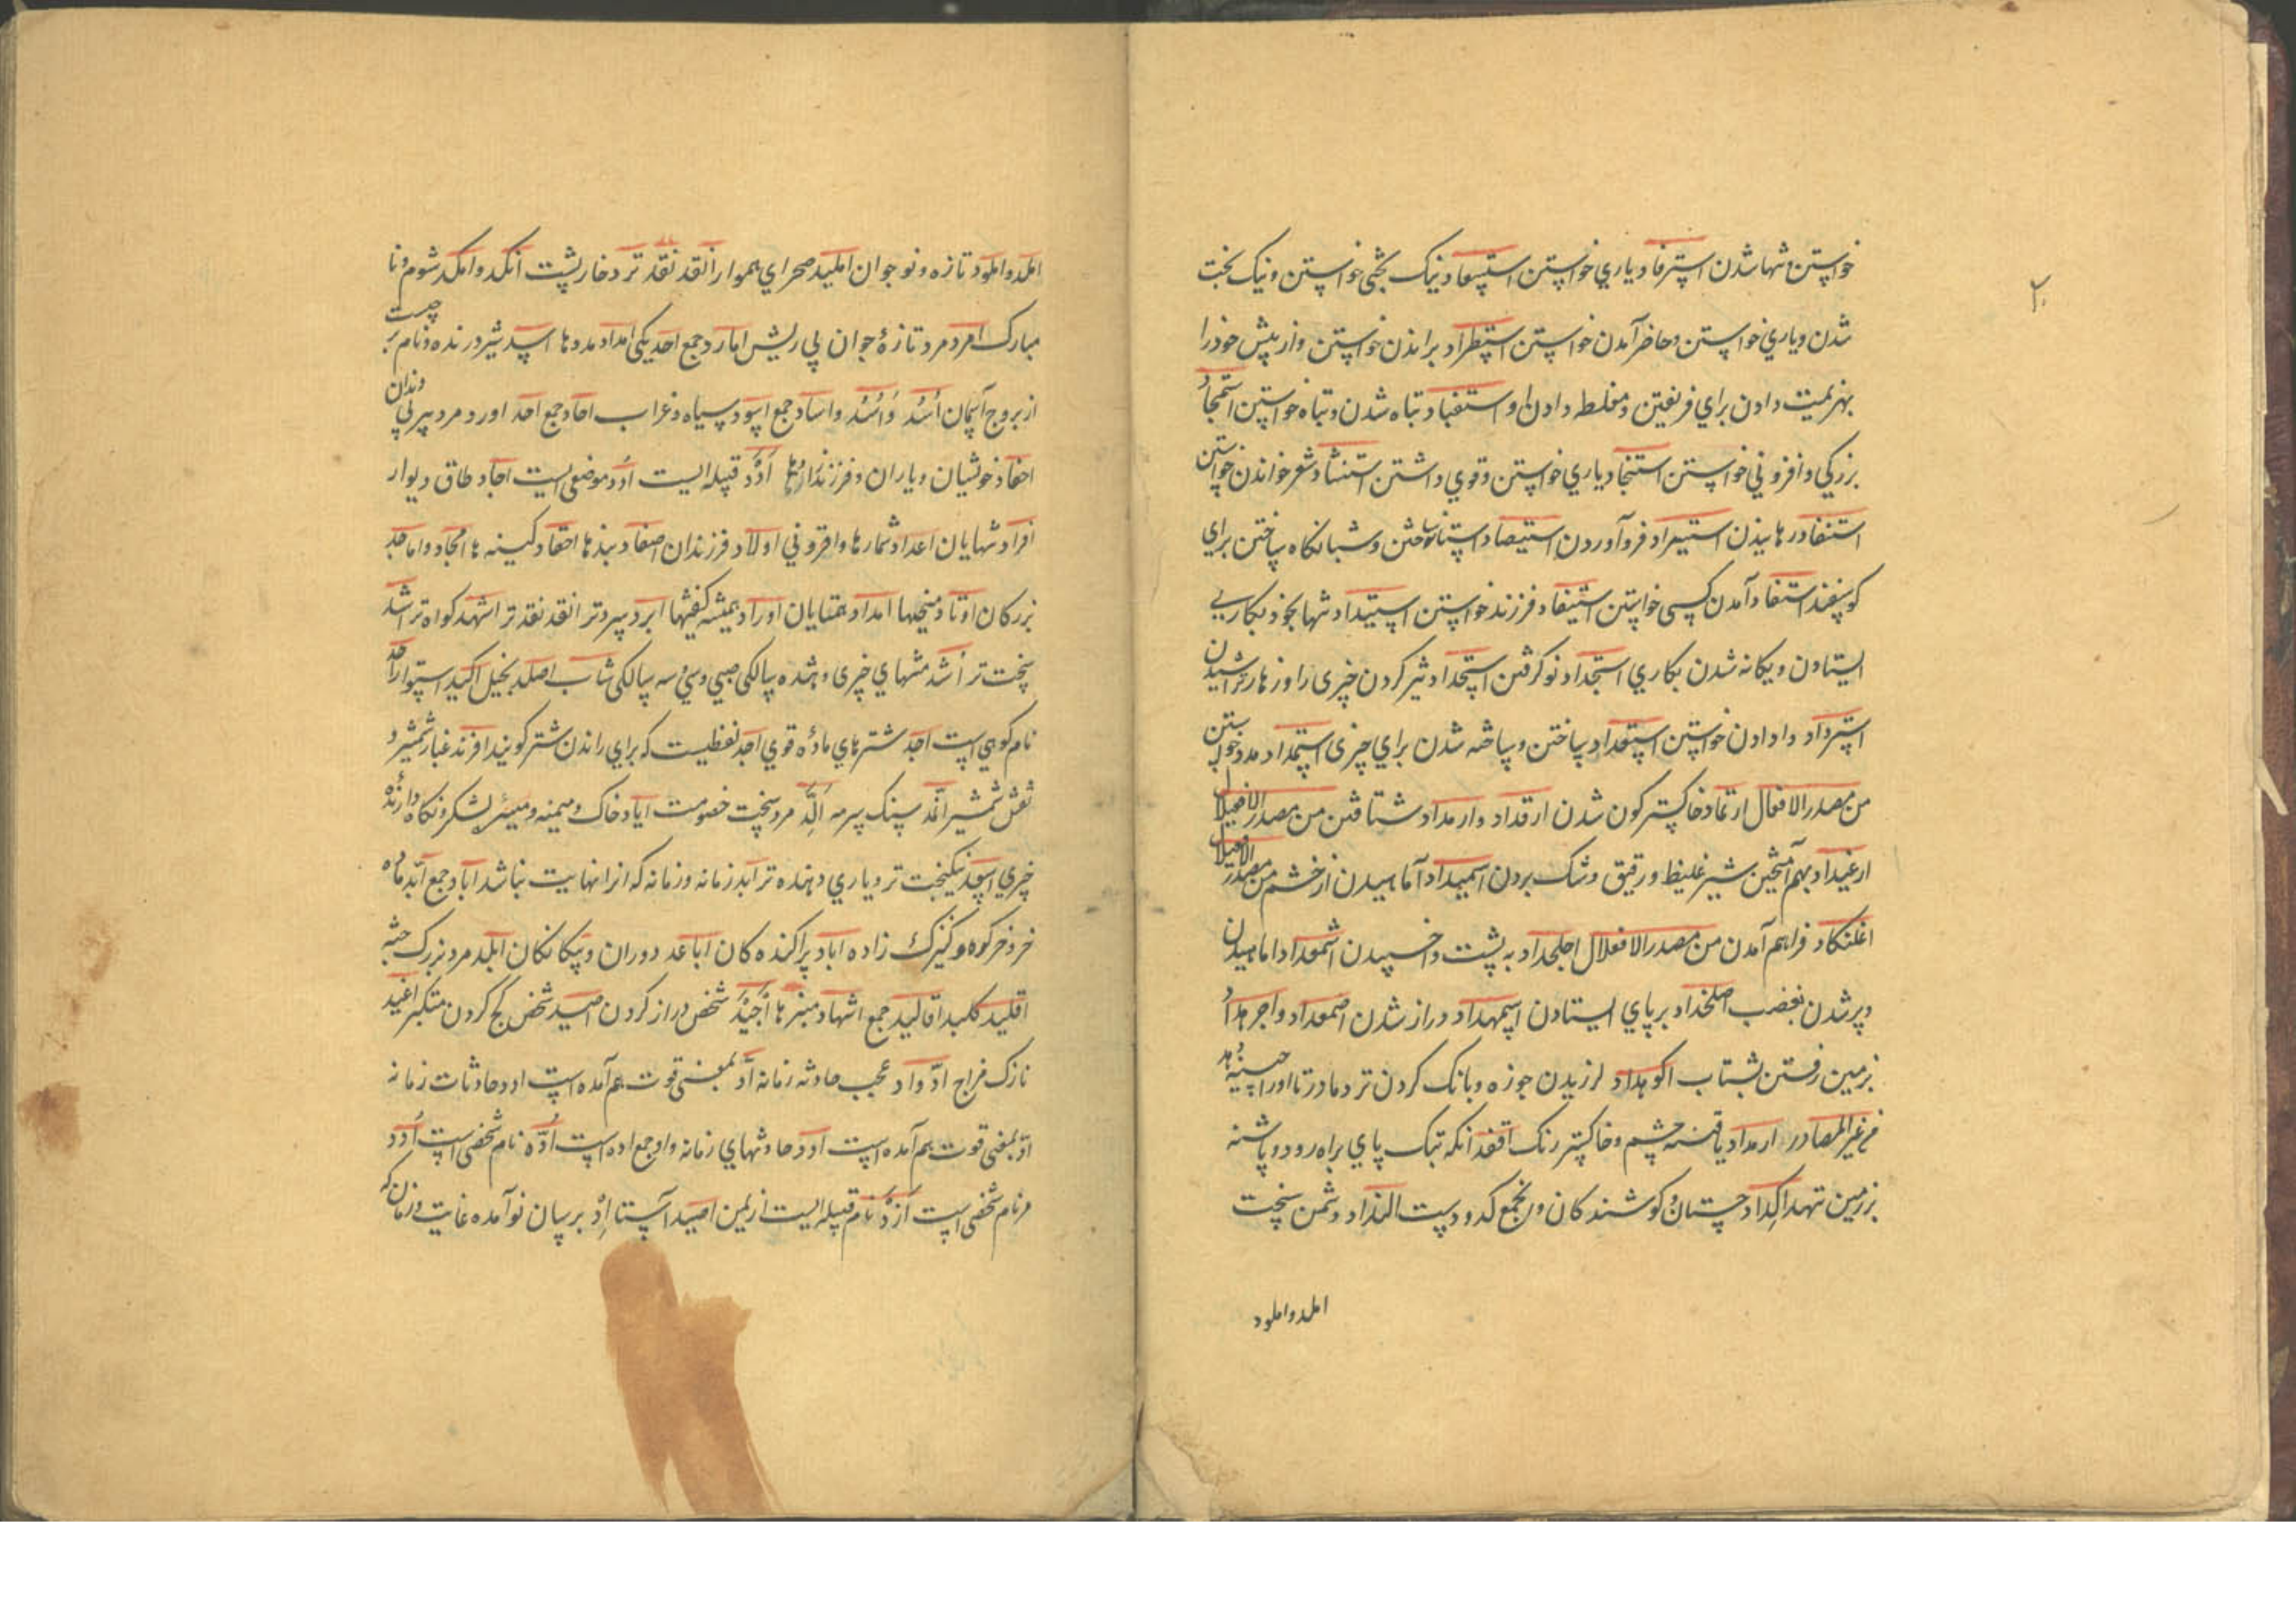 ۲۰
خواستن و تنها شدن استرفاد یاری خواستن استسعاد نیک بختی خواستن و نیک بخت
شدن و یاری خواستن و حاضر آمدن خواستن استطراد براندن خواستن و از پیش خود را
بهزیمت دادن برای فریفتن و مغلطه دادن او استفساد تباه شدن و تباه خواستن استمجاد
بزرگی و افزونی خواستن استنجاد یاری خواستن و قوی داشتن استنشاد شعر خواندن خواستن
استنقاد رهانیدن استیراد فرو آوردن استیصاد آستان ساختن و شبانگاه ساختن برای
گوسفند استنفاد آمدن کسی خواستن استیلاد فرزند خواستن استبداد تنها بخود بکاری
ایستادن و یگانه شدن بکاری استجداد نو گرفتن استحداد تیز کردن چیزی را و زهار تراشیدن
استرداد وا دادن خواستن استعداد ساختن و ساخته شدن برای چیزی استمداد مدد خواستن
من مصدر الافعال ارتماد خاکستر گون شدن ارقداد و ارمداد شتافتن من مصدر الافعیلال
ارغیداد بهم آمیختن شیر غلیظ و رقیق و شک بردن اسمیداد آماسیدن از خشم من مصدر الافعیلال
اعلنکاد فراهم آمدن من مصدر الافعلال اجلخداد به پشت وا خسپیدن اشمعداد اماسیدن
و پر شدن بغضب اصلخداد بر پای ایستادن اسمهداد دراز شدن اصمعداد و اجرهداد
بزمین رفتن بشتاب اکوهداد لرزیدن جوزه و بانک کردن نزد مادر تا او را چینه دهد
من غیر المصادر ارمداد یافته چشم و خاکستر رنک اقفد آنکه تبک پای براه رود و پاشنه
بزمین ننهد اکداد چستان و کوشندگان و بجمع کدود ست الندد دشمن سخت
املد و املود
املد و املود تازه و نوجوان املید صحرای هموار انقد نقدتر و خارپشت انکد و امکد شوم و نا
مبارک امرد مرد تازهٔ جوان بی ریش امارد جمع احد یکی امداد مددها اسد شیر درنده و نام برجیست
از بروج آسمان اُسُد و اُسْد و اساد جمع اسود سیاه و غراب احاد جمع احد ادرد مرد پیر بی دندان
احفاد خویشان و یاران و فرزندزادها اُدَد قبیله ایست اُدد موضعی ایست اجاد طاق دیوار
افراد تنهایان اعداد شمارها و افزونی اولاد فرزندان اصفاد بندها احقاد کینه ها امجاد و اماجد
بزرگان اوتاد میخها امداد همتایان اوراد همیشه گفتیها ابرد سردتر انقد نقدتر اشهد گواه تر اشد
سخت تر اَشُد منتهای چیزی و هشده سالگی صبی و سی و سه سالگی شاب اصلد بخیل اکید استوار احد
نام کوهی است اجد شترهای مادهٔ قوی اجد لفظیست که برای راندن شتر گویند افرند غبار شمشیر و
نقش شمشیر اثمد سنک سرمه اَلَدّ مرد سخت خصومت ایاد خاک و میمنه و میسرهٔ لشکر و نگاه دارنده
چیزی اسعد نیکبخت تر و یاری دهنده تر ابد زمانه و زمانه که انرا نهایت نباشد اباد جمع ابد ماده
خر و خر کوه و کنیزک زاده ابادید پراکنده کان اباعد دوران و بیگانگان ابلد مرد بزرگ جثه
اقلید کلید اقالید جمع اشهاد منبرها اَجْیَد شخص دراز گردن اصید شخص کج گردن متکبر اغید
نازک مزاج ادّ و اد عجیب حادثه زمانه اَدّ بمعنی قوت هم آمده است ادد حادثات زمانه
ادّ بمعنی قوت هم آمده است ادد حادثهای زمانه و او جمع اده است اُدّه نام شخصی است اُدَد
نام شخصی است اَزْد نام قبیله ایست از یمن اصید آستانه اِذ برسان نو آمده غایت و زمان که